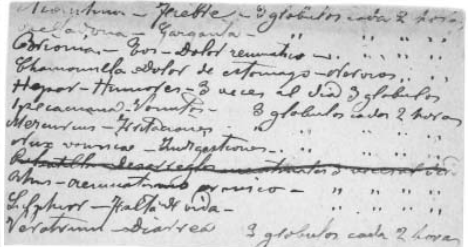 Aconitum – Fiebre – 3 globulos cada 2 horas
Belladona – Garganta – " " " "
Brionia – Tos – Dolor reumatico – " " "
Chamomilla – Dolor de estomago – Nervios " " "
Hepar – Humores – 3 veces al dia 3 globulos
Ipecacuana – Vomitos – 3 globulos cada 2 horas
Mercurius – Irritaciones " " " "
Nux vomica – Indigestiones – " " " "
Pulsatilla – Desarreglos
Rhus – reumatismo cronico – " " " "
Sulphur – Falta de vida – " " " "
Veratrum – Diarrea 3 globulos cada 2 horas